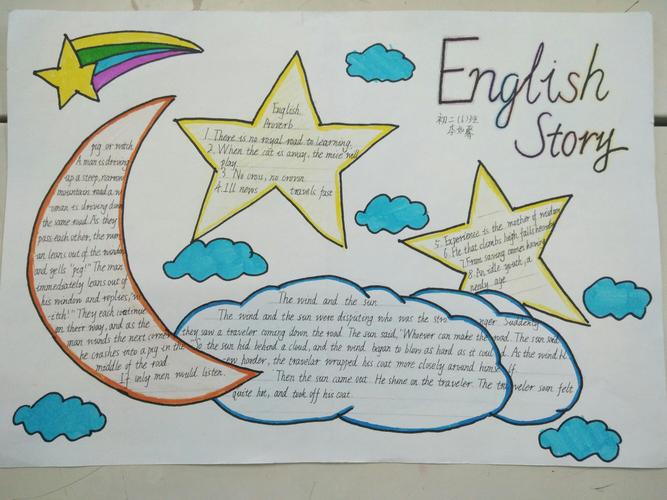 English
Story
初二(6)班
English
Proverb
1. There is no royal road to learning.
2. When the cat is away, the mice will
play
3. No cross, no crown
4. Ill news travels fast
5. Experience is the mother of wisdom
6. He that climbs high falls heavily
7. From saving comes having
8. An idle youth, a
needy age
pig or witch
A man is driving
up a steep, narrow
mountain road. A w
oman is driving down
the same road. As they
pass each other, the wom
an leans out of the window
and yells "pig!" The man
immediately leans out of
his window and replies, "w
itch!" They each continue
on their way, and as the
man rounds the next corner
he crashes into a pig in the
middle of the road.
If only men would listen.
The wind and the sun
The wind and the sun were disputing who was the stronger. Suddenly
they saw a traveler coming down the road. The sun said, "Whoever can make the road. The sun and
So the sun hid behind a cloud, and the wind began to blow as hard as it could. As the wind bl
ew harder, the travelar wrapped his coat more closely around himself.
Then the sun came out. He shine on the traveler. The traveler soon felt
quite hot, and took off his coat.